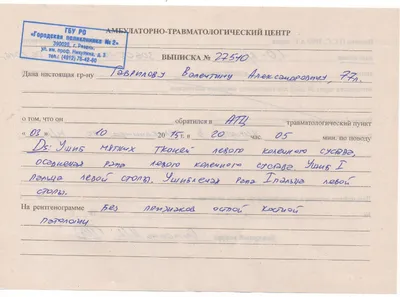 ГБУ РО
«Городская поликлиника № 2»
АМБУЛАТОРНО-ТРАВМАТОЛОГИЧЕСКИЙ ЦЕНТР
ВЫПИСКА № 22540
Дана настоящая гр-ну Гаврилову Валентину Александровичу, 77 л.
о том, что он обратился в АТЦ травматологический пункт
« 03 » 10 2015 г. в 20 час. 05 мин. по поводу
Ds: Ушиб мягких тканей левого коленного сустава,
осадненная рана левого коленного сустава Ушиб I
пальца левой стопы. Ушибленная рана I пальца левой
стопы.
На рентгенограмме Без признаков острой костной
патологии